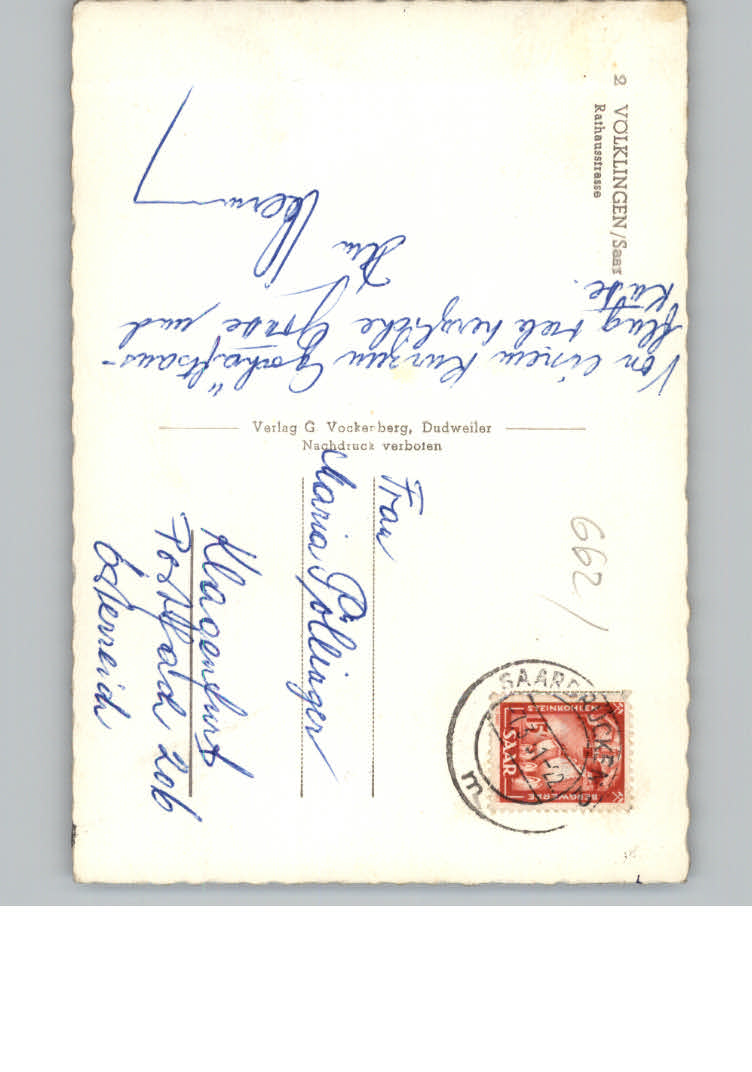 2 VÖLKLINGEN/Saar
Rathausstrasse
Von einem kurzen Geschäftsaus-
flug viele herzliche Grüße und
Küße.
Verlag G. Vockenberg, Dudweiler
Nachdruck verboten
Frau
Maria Pollinger
Klagenfurt
Postfach 206
Österreich
662/
SAARBRÜCKEN 2
m
15
SAAR
BERGWERKE